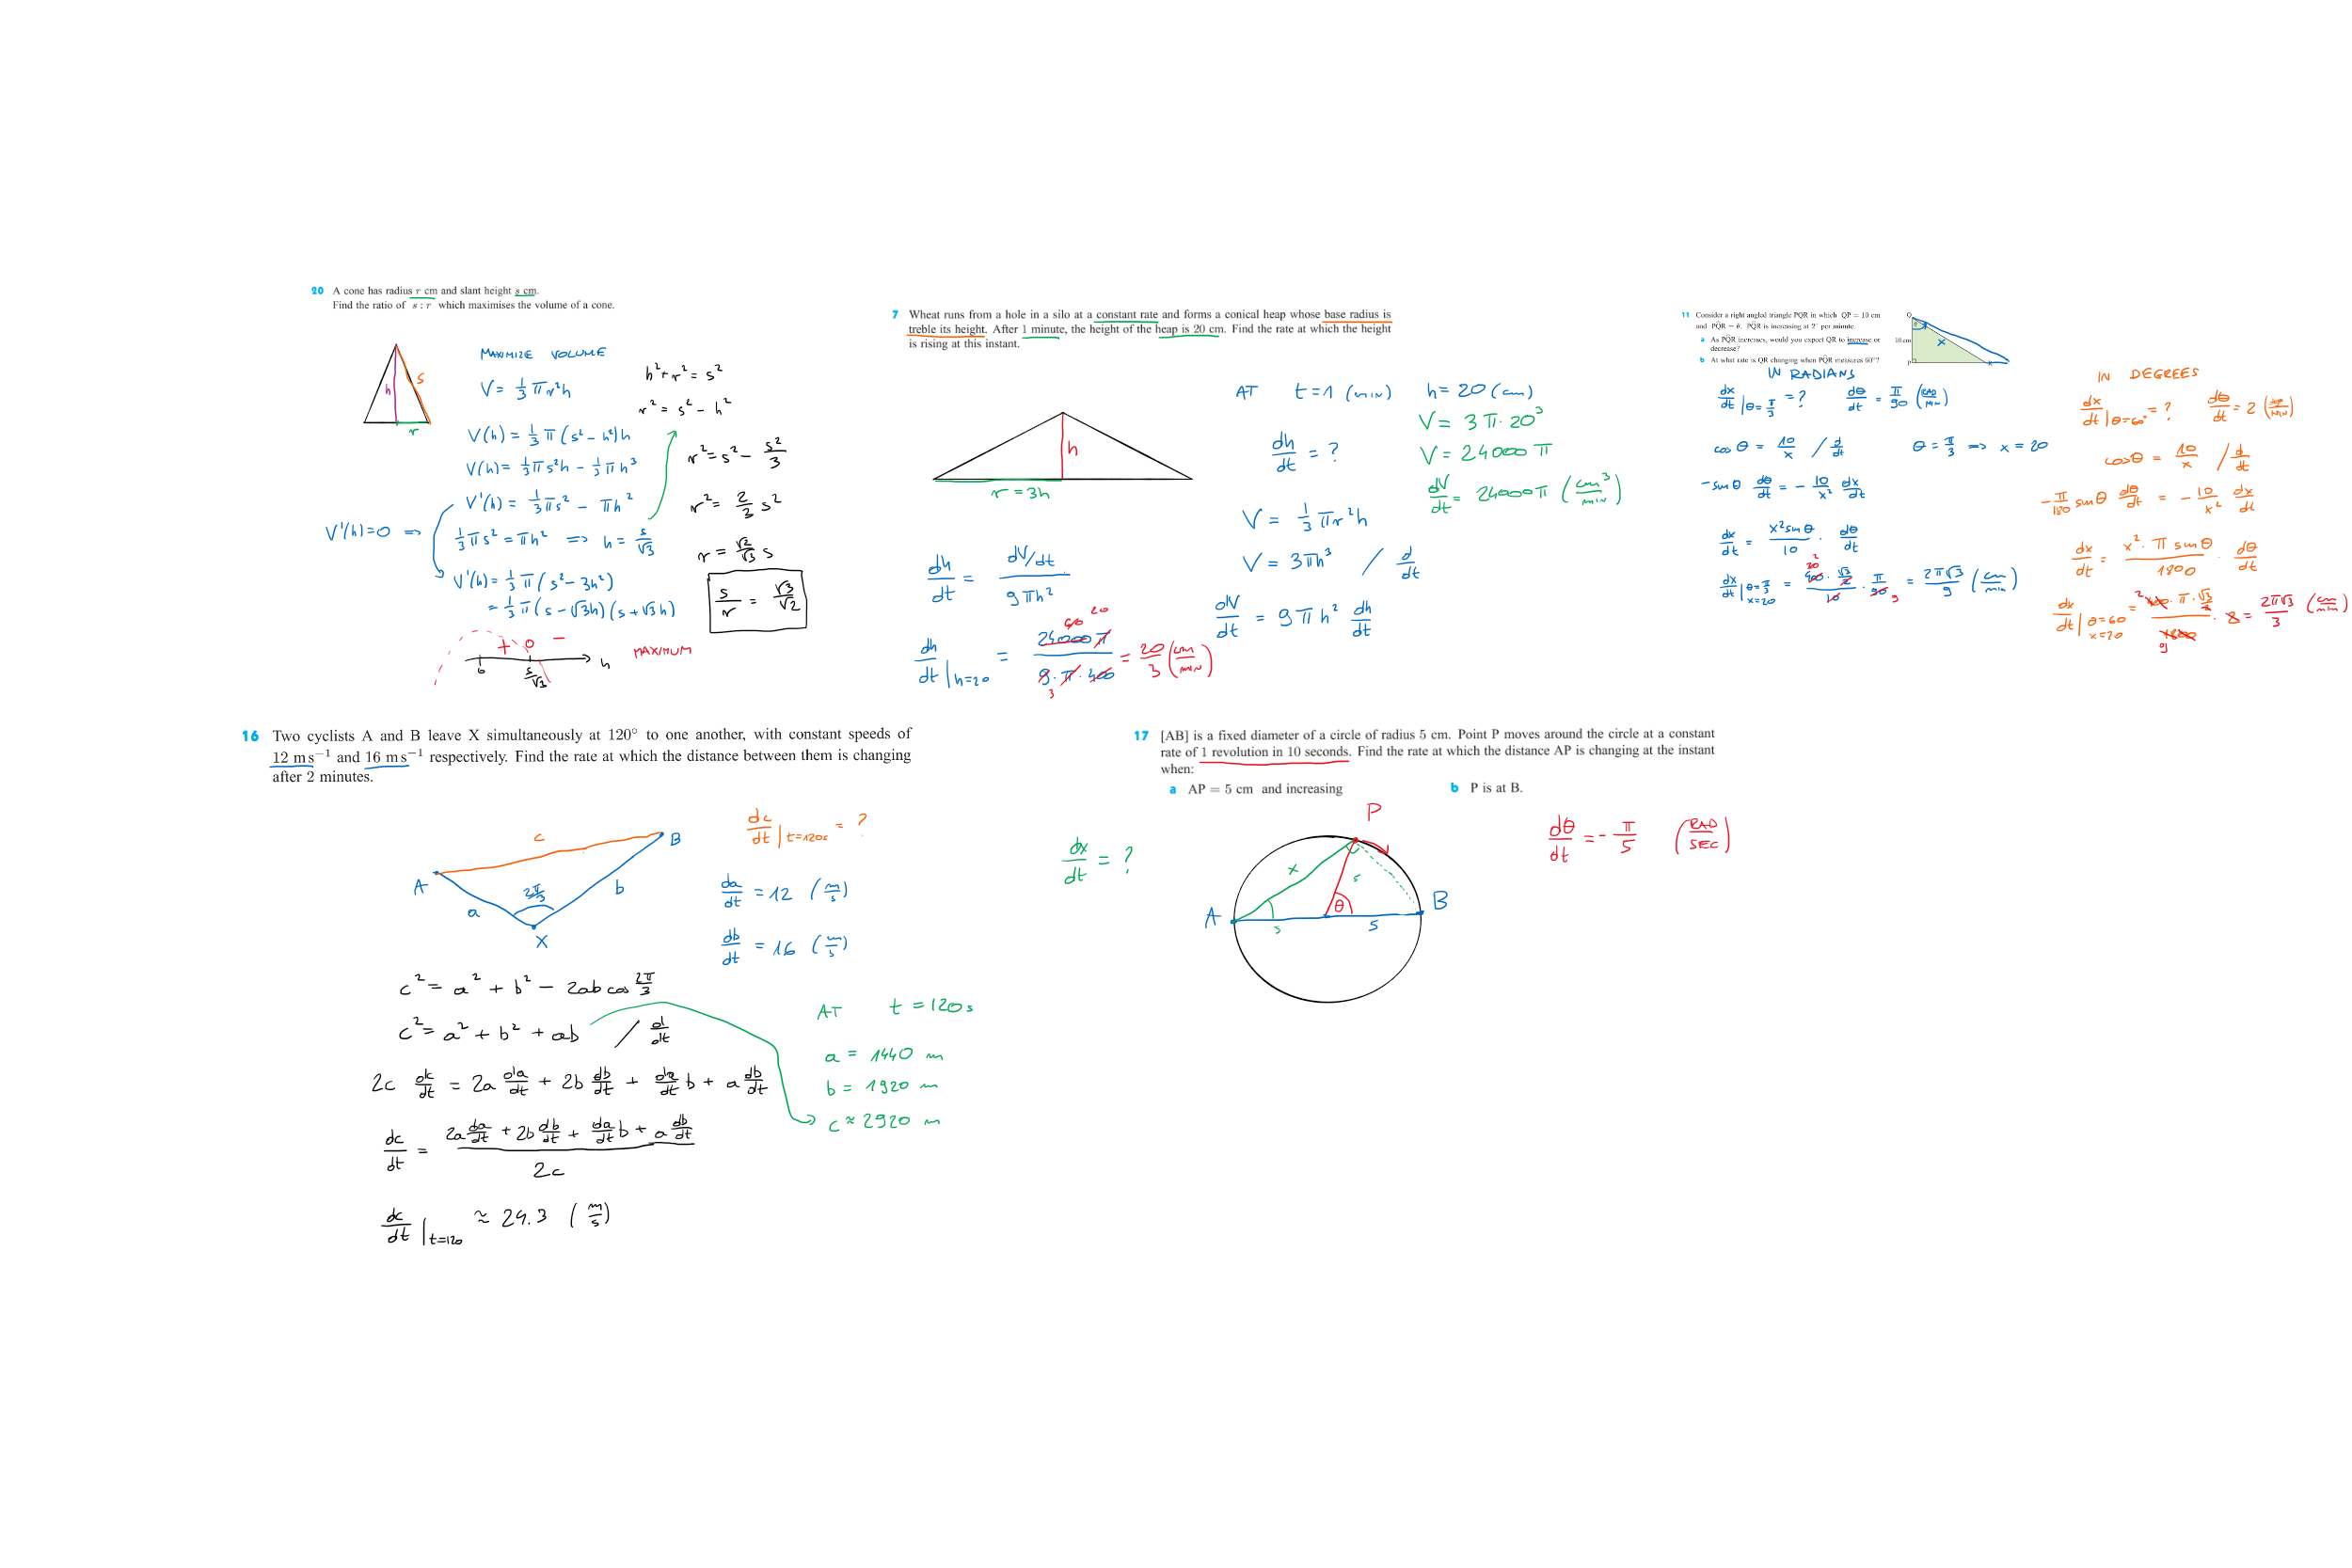 20 A cone has radius r cm and slant height s cm.
Find the ratio of s : r which maximises the volume of a cone.
h
s
r
MAXIMIZE VOLUME
V = 1/3 πr²h
V(h) = 1/3 π(s² – h²)h
V(h) = 1/3 πs²h – 1/3 πh³
V'(h) = 1/3 πs² – πh²
V'(h)=0 ⇒
1/3 πs² = πh² ⇒ h = s/√3
V'(h) = 1/3 π(s² – 3h²)
= 1/3 π(s – √3h)(s + √3h)
+ 0 –
s/√3
h
MAXIMUM
h² + r² = s²
r² = s² – h²
r² = s² – s²/3
r² = 2/3 s²
r = √2/√3 s
s/r = √3/√2
7 Wheat runs from a hole in a silo at a constant rate and forms a conical heap whose base radius is
treble its height. After 1 minute, the height of the heap is 20 cm. Find the rate at which the height
is rising at this instant.
h
r = 3h
AT t=1 (MIN) h=20 (cm)
V = 3π·20³
dh/dt = ?
V = 24000π
dV/dt = 24000π (cm³/min)
V = 1/3 πr²h
V = 3πh³ / d/dt
dV/dt = 9πh² dh/dt
dh/dt = dV/dt / 9πh²
dh/dt |h=20 = 24000π / 9·π·400 = 20/3 (cm/MIN)
60 20
3
11 Consider a right angled triangle PQR in which QP = 10 cm
and PQ̂R = θ. PQ̂R is increasing at 2° per minute.
a As PQ̂R increases, would you expect QR to increase or
decrease?
b At what rate is QR changing when PQ̂R measures 60°?
Q
10 cm
P
x
IN RADIANS
dx/dt |θ=π/3 = ? dθ/dt = π/90 (RAD/MIN)
cos θ = 10/x / d/dt θ = π/3 ⇒ x = 20
–sin θ dθ/dt = – 10/x² dx/dt
dx/dt = x² sin θ/10 · dθ/dt
dx/dt |θ=π/3 x=20 = 400 · √3/2 / 10 · π/90 = 2π√3/9 (cm/min)
IN DEGREES
dx/dt |θ=60° = ? dθ/dt = 2
cos θ = 10/x / d/dt
–π/180 sin θ dθ/dt = – 10/x² dx/dt
dx/dt = x²·π sin θ/1800 · dθ/dt
dx/dt |θ=60 x=20 = 400·π·√3/2 / 1800 · 2 = 2π√3/3 (cm/min)
9
16 Two cyclists A and B leave X simultaneously at 120° to one another, with constant speeds of
12 m s⁻¹ and 16 m s⁻¹ respectively. Find the rate at which the distance between them is changing
after 2 minutes.
c
B
A
2π/3
b
a
X
dc/dt |t=120s = ?
da/dt = 12 (m/s)
db/dt = 16 (m/s)
c² = a² + b² – 2ab cos 2π/3
c² = a² + b² + ab / d/dt
2c dc/dt = 2a da/dt + 2b db/dt + da/dt b + a db/dt
dc/dt = 2a da/dt + 2b db/dt + da/dt b + a db/dt / 2c
dc/dt |t=120 ≈ 24.3 (m/s)
AT t = 120 s
a = 1440 m
b = 1920 m
c ≈ 2920 m
17 [AB] is a fixed diameter of a circle of radius 5 cm. Point P moves around the circle at a constant
rate of 1 revolution in 10 seconds. Find the rate at which the distance AP is changing at the instant
when:
a AP = 5 cm and increasing b P is at B.
dx/dt = ?
P
x
5
θ
A
B
5
5
dθ/dt = – π/5 (RAD/SEC)